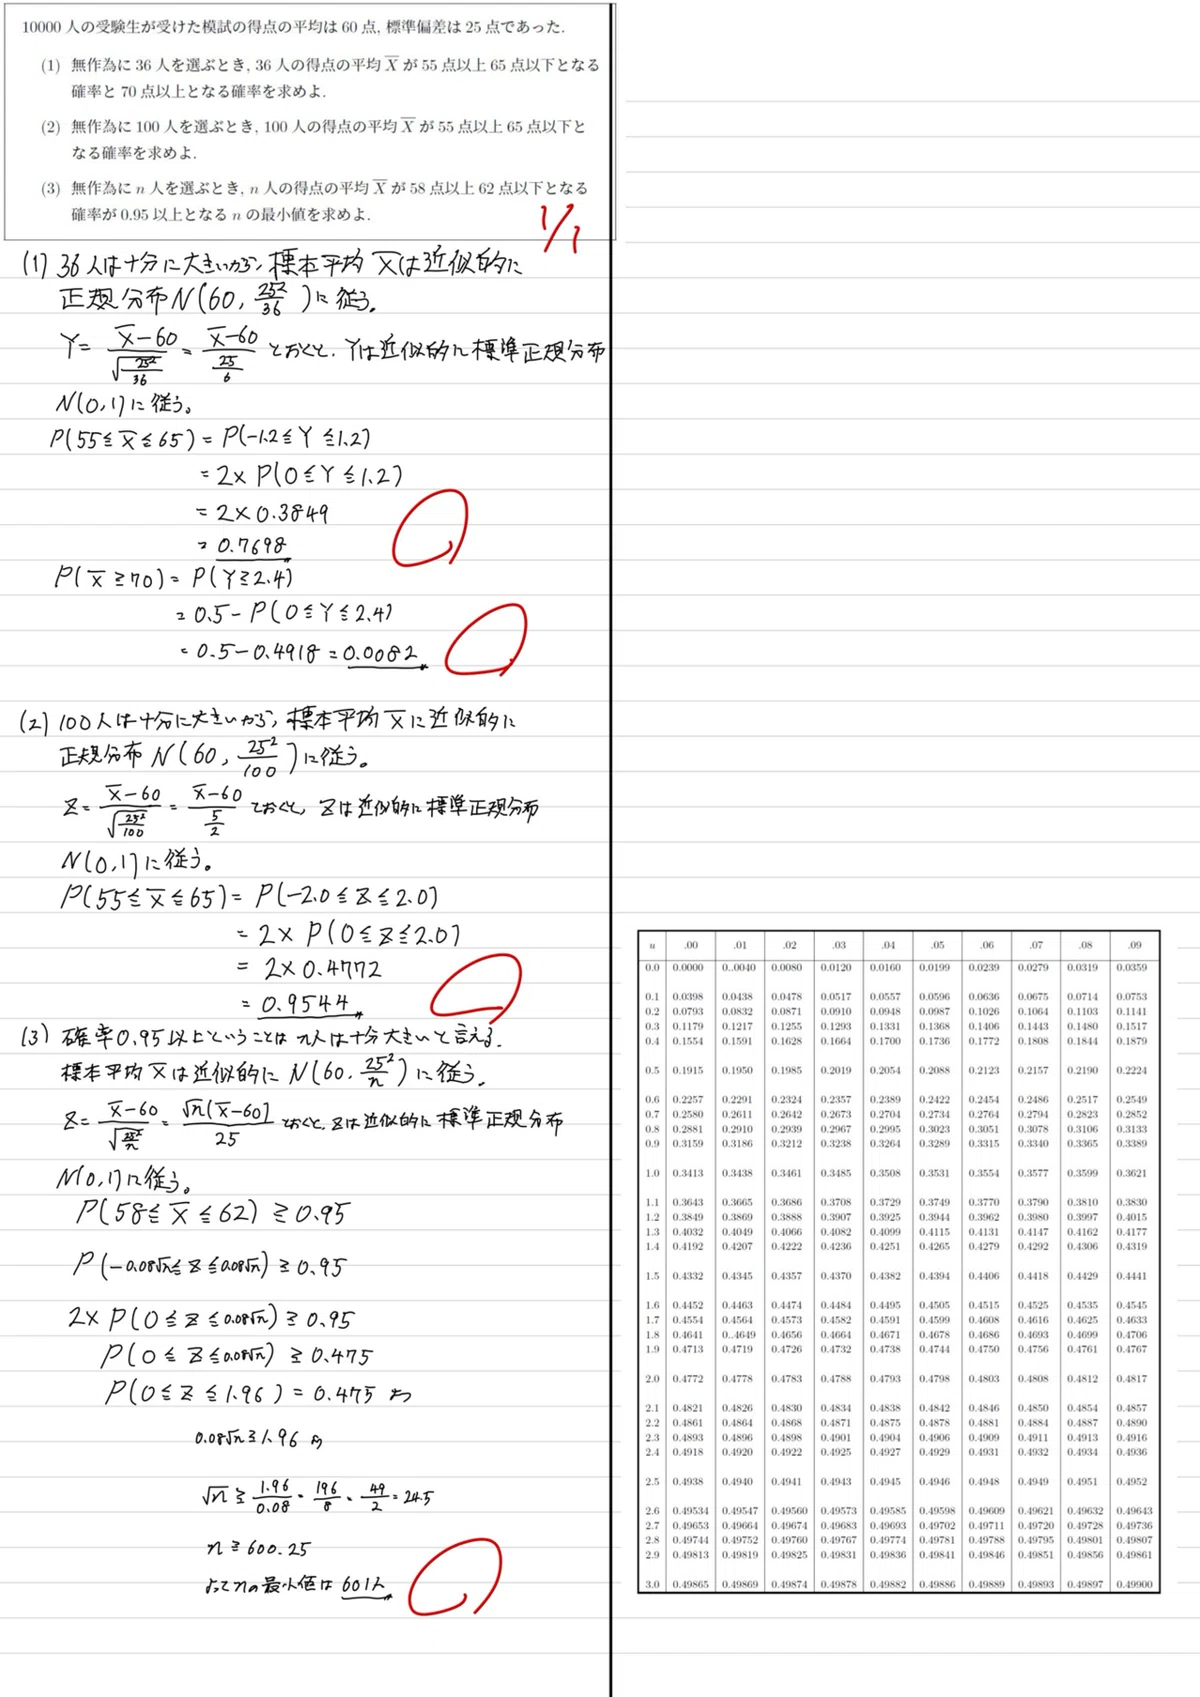 10000 人の受験生が受けた模試の得点の平均は 60 点, 標準偏差は 25 点であった.
(1) 無作為に 36 人を選ぶとき, 36 人の得点の平均 X̄ が 55 点以上 65 点以下となる
確率と 70 点以上となる確率を求めよ.
(2) 無作為に 100 人を選ぶとき, 100 人の得点の平均 X̄ が 55 点以上 65 点以下と
なる確率を求めよ.
(3) 無作為に n 人を選ぶとき, n 人の得点の平均 X̄ が 58 点以上 62 点以下となる
確率が 0.95 以上となる n の最小値を求めよ.
1/1
(1) 36人は十分に大きいから, 標本平均 X̄は近似的に
正規分布N(60, 25²/36)に従う。
Y = (X̄-60)/√(25²/36) = (X̄-60)/(25/6) とおくと, Yは近似的に標準正規分布
N(0,1)に従う。
P(55≦X̄≦65) = P(-1.2≦Y≦1.2)
= 2×P(0≦Y≦1.2)
= 2×0.3849
= 0.7698
P(X̄≧70) = P(Y≧2.4)
= 0.5-P(0≦Y≦2.4)
= 0.5-0.4918 = 0.0082
(2) 100人は十分に大きいから, 標本平均 X̄に近似的に
正規分布 N(60, 25²/100)に従う。
Z = (X̄-60)/√(25²/100) = (X̄-60)/(5/2) ておくと, Zは近似的に標準正規分布
N(0,1)に従う。
P(55≦X̄≦65) = P(-2.0≦Z≦2.0)
= 2×P(0≦Z≦2.0)
= 2×0.4772
= 0.9544
(3) 確率0.95以上ということは n人は十分大きいと言える.
標本平均X̄は近似的に N(60, 25²/n)に従う。
Z = (X̄-60)/√(25²/n) = √n(X̄-60)/25 とおくと, Zは近似的に標準正規分布
N(0,1)に従う。
P(58≦X̄≦62) ≧0.95
P(-0.08√n≦Z≦0.08√n) ≧0.95
2×P(0≦Z≦0.08√n) ≧0.95
P(0≦Z≦0.08√n) ≧0.475
P(0≦Z≦1.96) = 0.475 より
0.08√n≧1.96 より
√n≧1.96/0.08 = 196/8 = 49/2 = 24.5
n≧600.25
よってnの最小値は 601人
u .00 .01 .02 .03 .04 .05 .06 .07 .08 .09
0.0 0.0000 0..0040 0.0080 0.0120 0.0160 0.0199 0.0239 0.0279 0.0319 0.0359
0.1 0.0398 0.0438 0.0478 0.0517 0.0557 0.0596 0.0636 0.0675 0.0714 0.0753
0.2 0.0793 0.0832 0.0871 0.0910 0.0948 0.0987 0.1026 0.1064 0.1103 0.1141
0.3 0.1179 0.1217 0.1255 0.1293 0.1331 0.1368 0.1406 0.1443 0.1480 0.1517
0.4 0.1554 0.1591 0.1628 0.1664 0.1700 0.1736 0.1772 0.1808 0.1844 0.1879
0.5 0.1915 0.1950 0.1985 0.2019 0.2054 0.2088 0.2123 0.2157 0.2190 0.2224
0.6 0.2257 0.2291 0.2324 0.2357 0.2389 0.2422 0.2454 0.2486 0.2517 0.2549
0.7 0.2580 0.2611 0.2642 0.2673 0.2704 0.2734 0.2764 0.2794 0.2823 0.2852
0.8 0.2881 0.2910 0.2939 0.2967 0.2995 0.3023 0.3051 0.3078 0.3106 0.3133
0.9 0.3159 0.3186 0.3212 0.3238 0.3264 0.3289 0.3315 0.3340 0.3365 0.3389
1.0 0.3413 0.3438 0.3461 0.3485 0.3508 0.3531 0.3554 0.3577 0.3599 0.3621
1.1 0.3643 0.3665 0.3686 0.3708 0.3729 0.3749 0.3770 0.3790 0.3810 0.3830
1.2 0.3849 0.3869 0.3888 0.3907 0.3925 0.3944 0.3962 0.3980 0.3997 0.4015
1.3 0.4032 0.4049 0.4066 0.4082 0.4099 0.4115 0.4131 0.4147 0.4162 0.4177
1.4 0.4192 0.4207 0.4222 0.4236 0.4251 0.4265 0.4279 0.4292 0.4306 0.4319
1.5 0.4332 0.4345 0.4357 0.4370 0.4382 0.4394 0.4406 0.4418 0.4429 0.4441
1.6 0.4452 0.4463 0.4474 0.4484 0.4495 0.4505 0.4515 0.4525 0.4535 0.4545
1.7 0.4554 0.4564 0.4573 0.4582 0.4591 0.4599 0.4608 0.4616 0.4625 0.4633
1.8 0.4641 0..4649 0.4656 0.4664 0.4671 0.4678 0.4686 0.4693 0.4699 0.4706
1.9 0.4713 0.4719 0.4726 0.4732 0.4738 0.4744 0.4750 0.4756 0.4761 0.4767
2.0 0.4772 0.4778 0.4783 0.4788 0.4793 0.4798 0.4803 0.4808 0.4812 0.4817
2.1 0.4821 0.4826 0.4830 0.4834 0.4838 0.4842 0.4846 0.4850 0.4854 0.4857
2.2 0.4861 0.4864 0.4868 0.4871 0.4875 0.4878 0.4881 0.4884 0.4887 0.4890
2.3 0.4893 0.4896 0.4898 0.4901 0.4904 0.4906 0.4909 0.4911 0.4913 0.4916
2.4 0.4918 0.4920 0.4922 0.4925 0.4927 0.4929 0.4931 0.4932 0.4934 0.4936
2.5 0.4938 0.4940 0.4941 0.4943 0.4945 0.4946 0.4948 0.4949 0.4951 0.4952
2.6 0.49534 0.49547 0.49560 0.49573 0.49585 0.49598 0.49609 0.49621 0.49632 0.49643
2.7 0.49653 0.49664 0.49674 0.49683 0.49693 0.49702 0.49711 0.49720 0.49728 0.49736
2.8 0.49744 0.49752 0.49760 0.49767 0.49774 0.49781 0.49788 0.49795 0.49801 0.49807
2.9 0.49813 0.49819 0.49825 0.49831 0.49836 0.49841 0.49846 0.49851 0.49856 0.49861
3.0 0.49865 0.49869 0.49874 0.49878 0.49882 0.49886 0.49889 0.49893 0.49897 0.49900